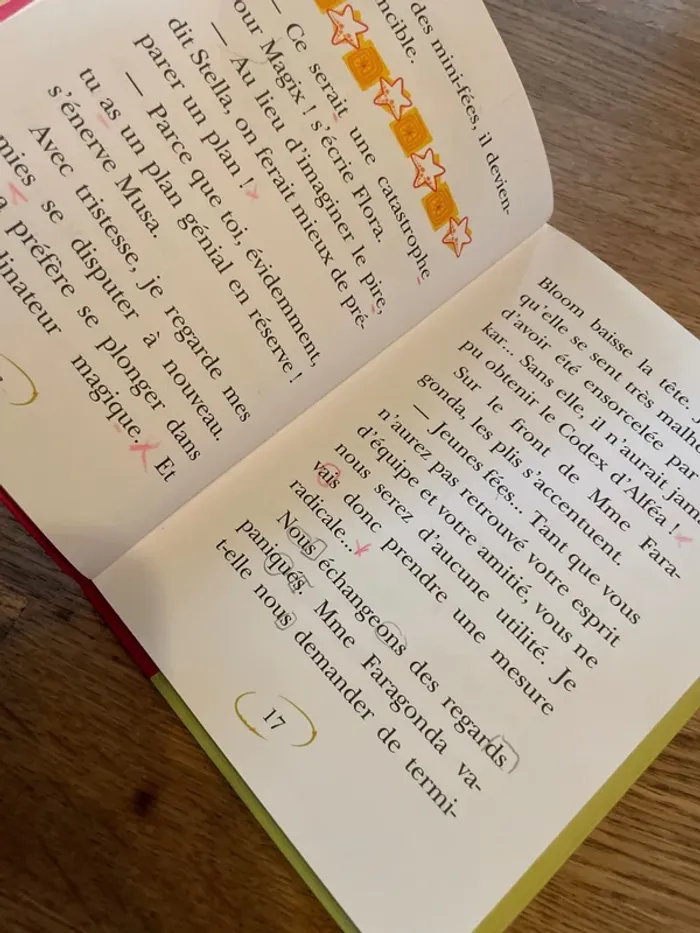 des mini-fées, il devien-
ncible.
— Ce serait une catastrophe
our Magix ! s'écrie Flora.
— Au lieu d'imaginer le pire,
dit Stella, on ferait mieux de pré-
parer un plan !
— Parce que toi, évidemment,
tu as un plan génial en réserve !
s'énerve Musa.
Avec tristesse, je regarde mes
mies se disputer à nouveau.
a préfère se plonger dans
dinateur magique. Et
Bloom baisse la tête. J
qu'elle se sent très malh
d'avoir été ensorcelée par
kar... Sans elle, il n'aurait jam
pu obtenir le Codex d'Alféa !
Sur le front de Mme Fara-
gonda, les plis s'accentuent.
— Jeunes fées... Tant que vous
n'aurez pas retrouvé votre esprit
d'équipe et votre amitié, vous ne
nous serez d'aucune utilité. Je
vais donc prendre une mesure
radicale...
Nous échangeons des regards
paniqués. Mme Faragonda va-
t-elle nous demander de termi-
17